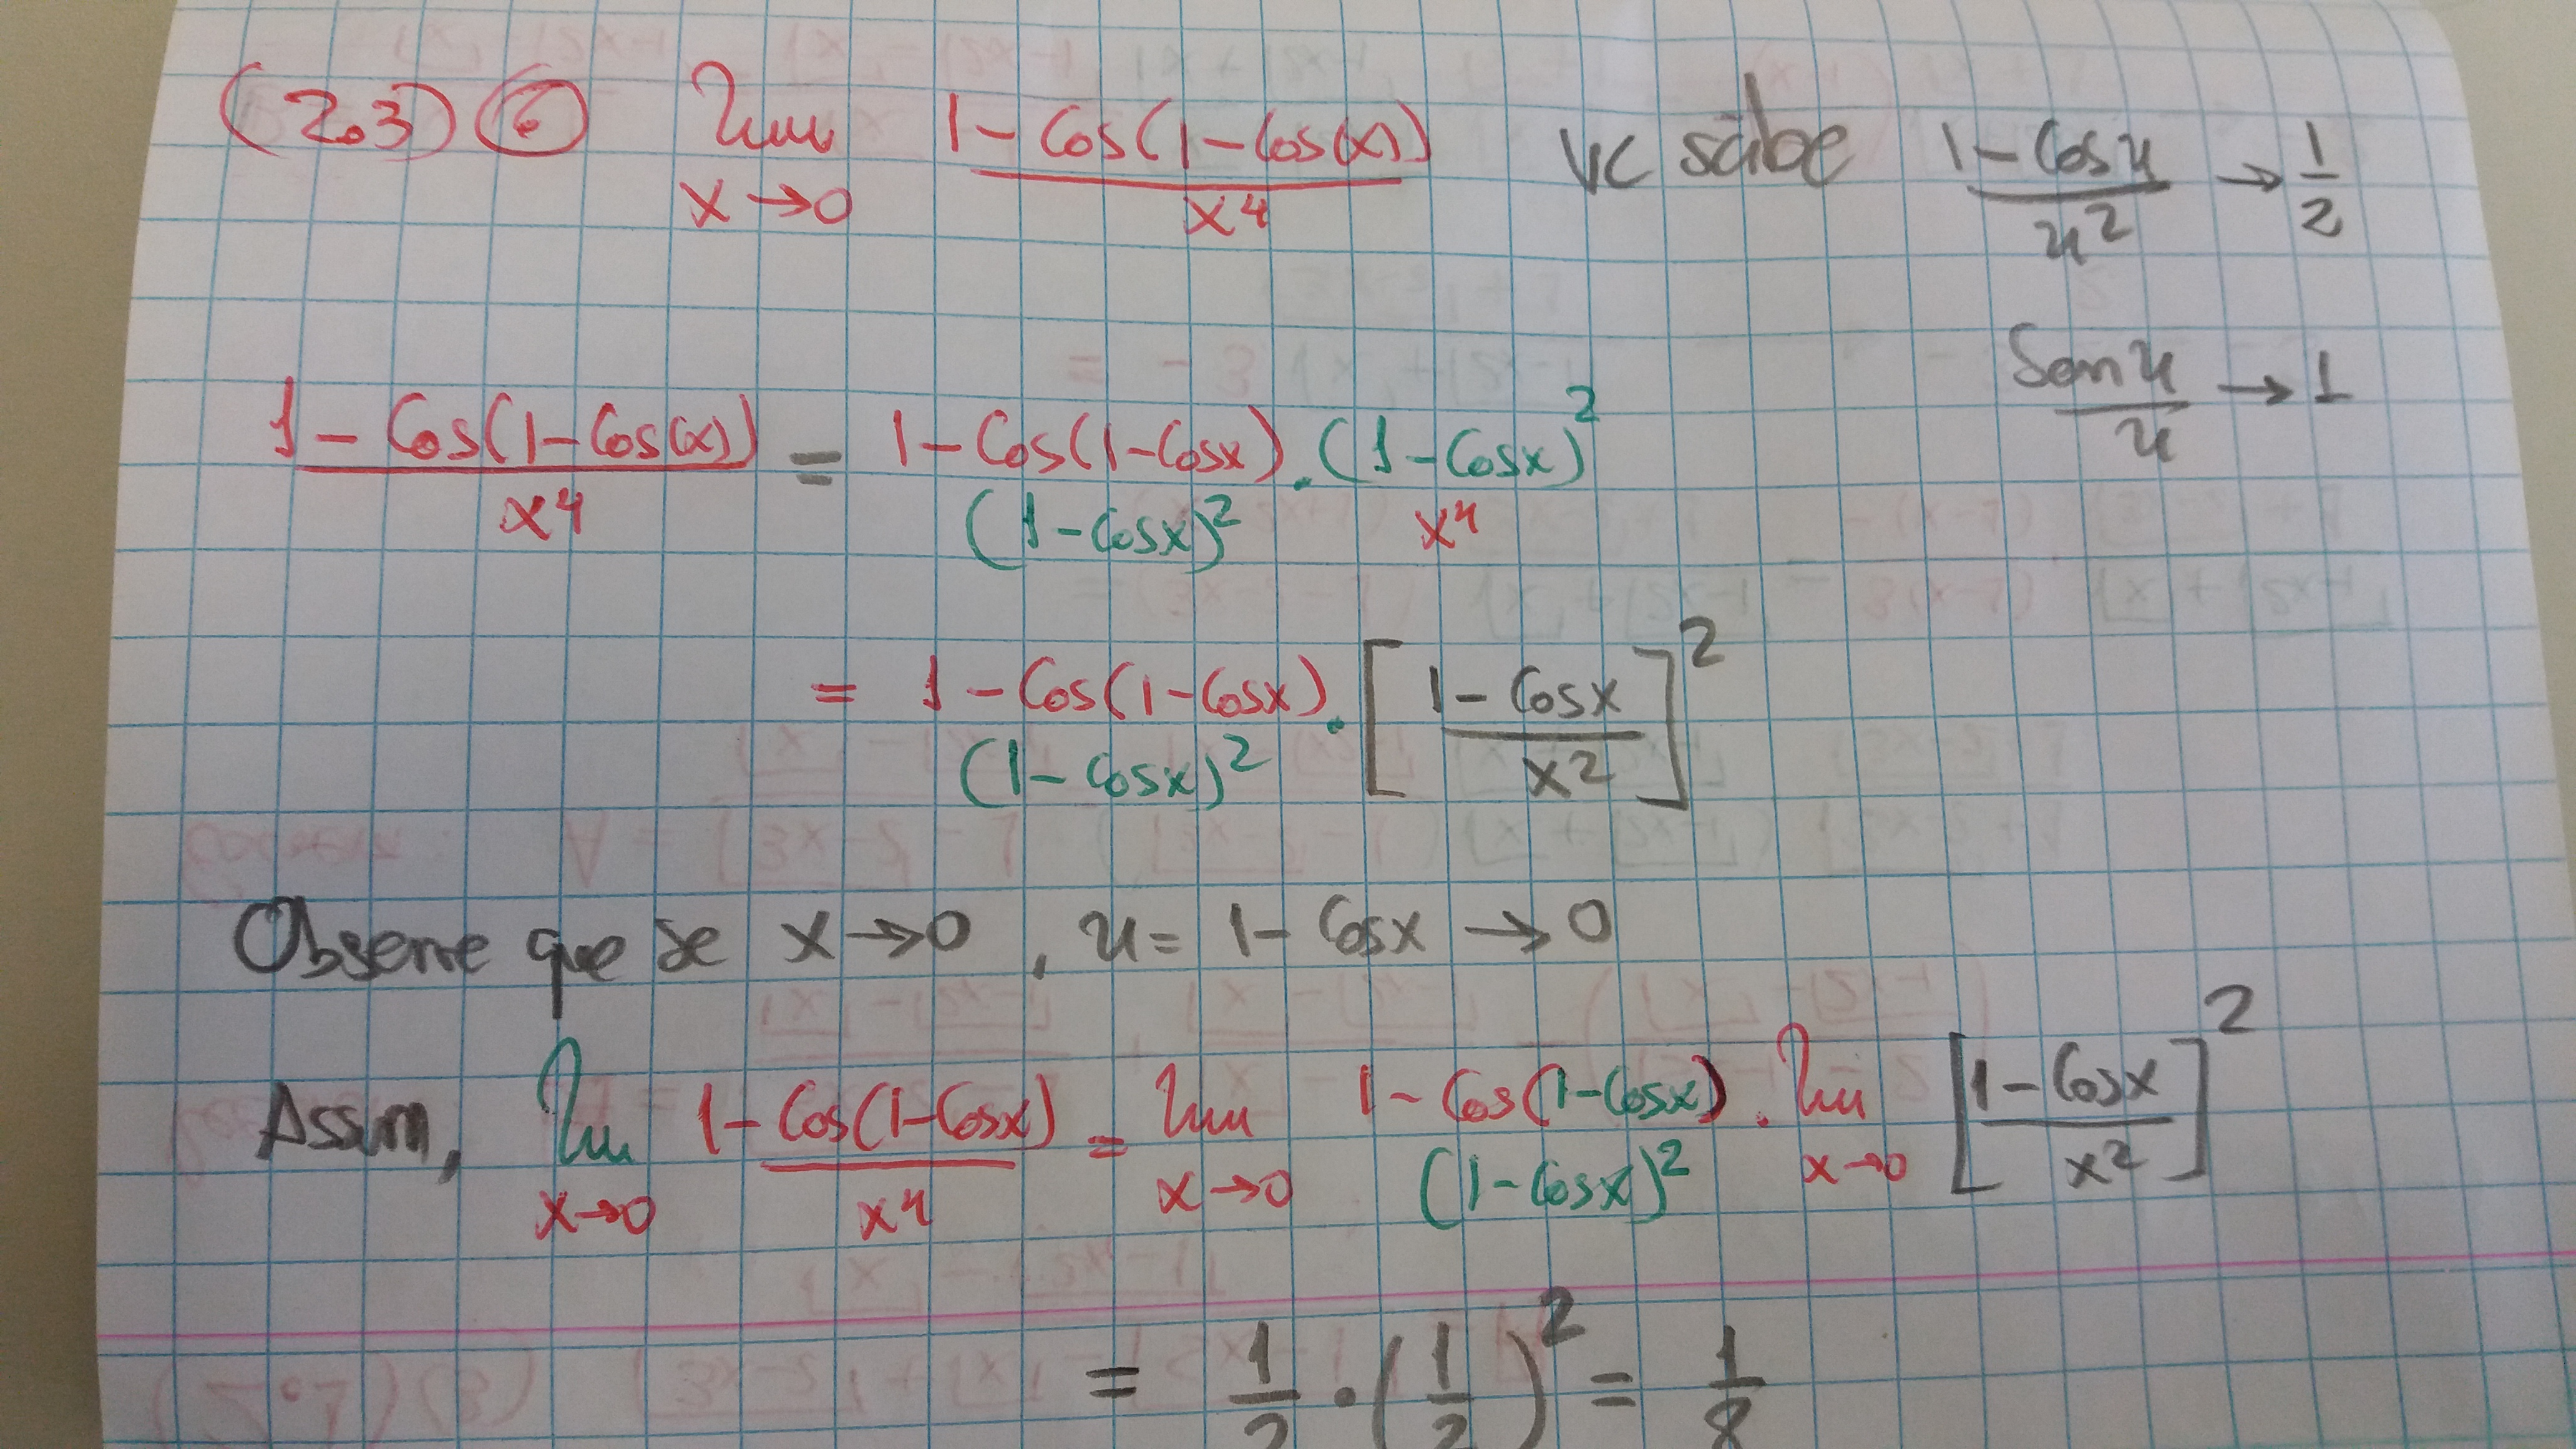 (2.3) ⑥ lim x→0 1-Cos(1-Cos(x)) / x⁴ Vc sabe 1-Cos u / u² → 1/2
Sen u / u → 1
1-Cos(1-Cos(x)) / x⁴ = 1-Cos(1-Cosx) / (1-Cosx)² · (1-Cosx)² / x⁴
= 1-Cos(1-Cosx) / (1-Cosx)² · [1-Cosx / x²]²
Observe que se x→0, u = 1-Cosx → 0
Assim, lim x→0 1-Cos(1-Cosx) / x⁴ = lim x→0 1-Cos(1-Cosx) / (1-Cosx)² · lim x→0 [1-Cosx / x²]²
= 1/2 · (1/2)² = 1/8